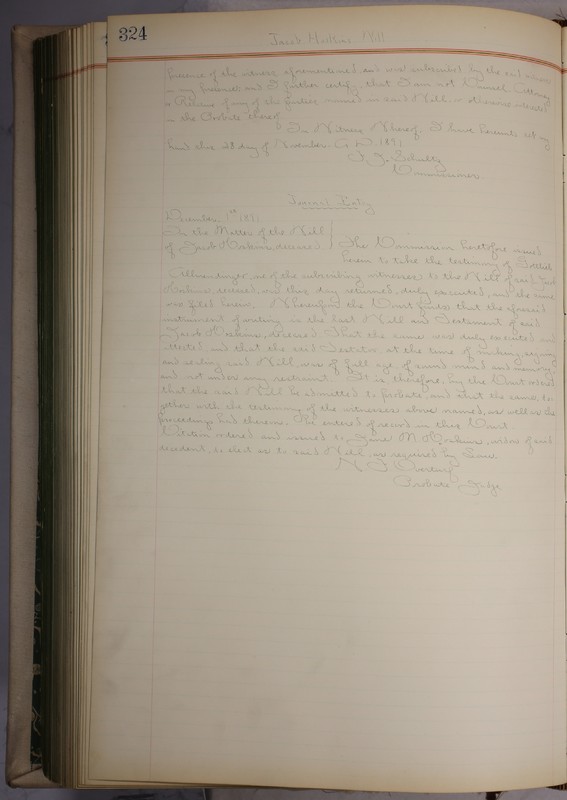 324
Jacob Will
presence of the witness aforementioned and was subscribed by the said witness
in my presence and I further certify that I am not Counsel, Attorney
or Relative of any of the parties named in said Will, or otherwise interested
in the Probate thereof.
In Witness Whereof, I have hereunto set my
hand this 28 day of November A. D. 1891
F. J. Schultz
Commissioner
Journal Entry
December 1st 1891
In the Matter of the Will
of Jacob deceased. The Commission heretofore issued
herein to take the testimony of Gottlieb
one of the subscribing witnesses to the Will of said Jacob
deceased, was this day returned, duly executed, and the same
was filed herein. Whereupon the Court finds that the aforesaid
instrument of writing is the last Will and Testament of said
Jacob deceased. That the same was duly executed and
attested and that the said Testator at the time of making, signing
and sealing said Will, was of full age of sound mind and memory,
and not under any restraint. It is therefore, by the Court ordered
that the said Will be admitted to probate, and that the same to-
gether with the testimony of the witnesses above named, as well as the
proceedings had thereon, be entered of record in this Court.
Citation ordered and issued to M. widow of said
decedent, to elect as to said Will, as required by Law
Probate Judge